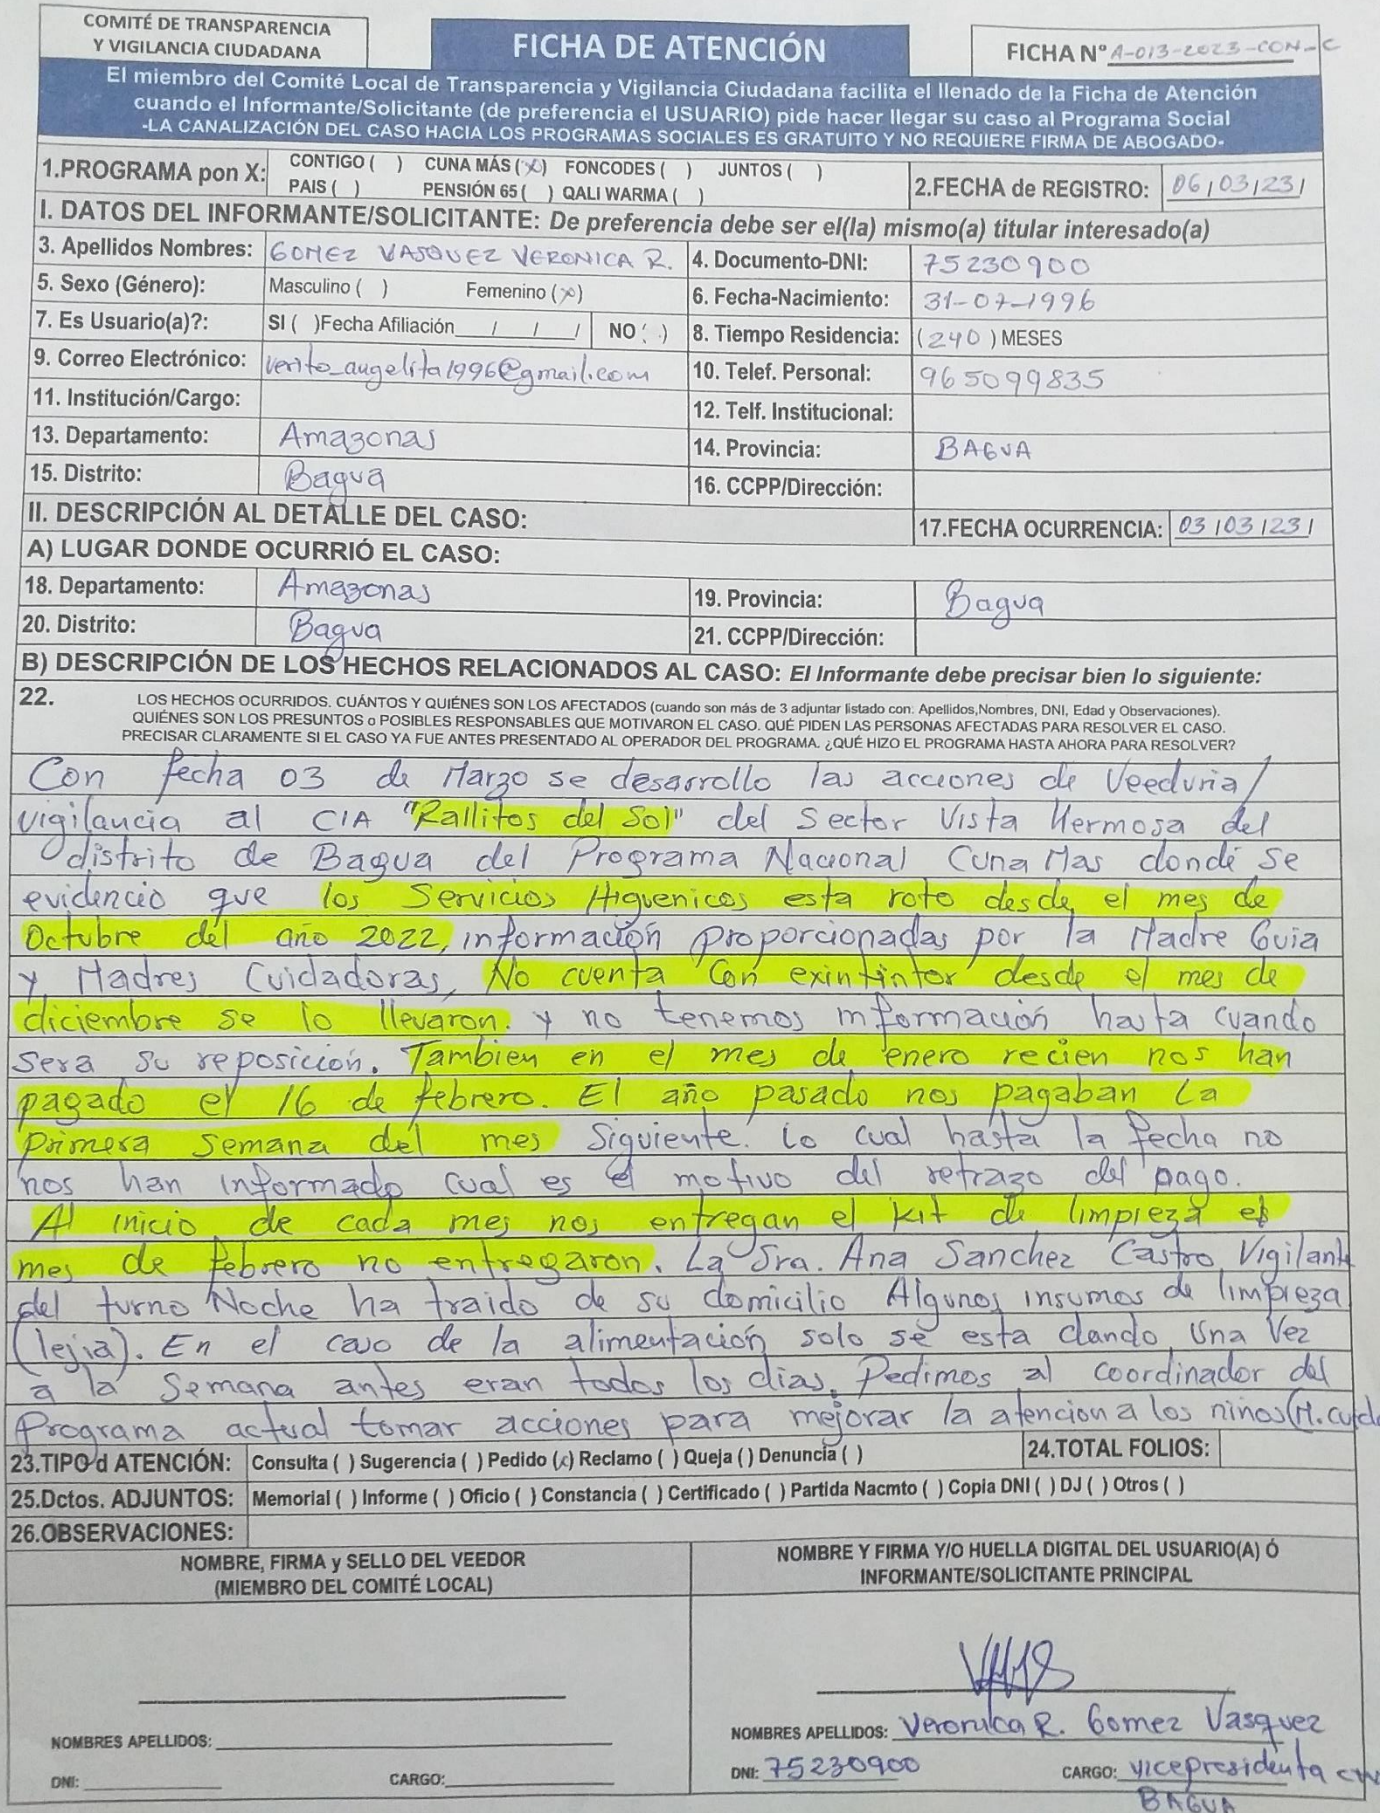 COMITÉ DE TRANSPARENCIA
Y VIGILANCIA CIUDADANA
FICHA DE ATENCIÓN
FICHA N° A-013-2023-CON-C
El miembro del Comité Local de Transparencia y Vigilancia Ciudadana facilita el llenado de la Ficha de Atención
cuando el Informante/Solicitante (de preferencia el USUARIO) pide hacer llegar su caso al Programa Social
-LA CANALIZACIÓN DEL CASO HACIA LOS PROGRAMAS SOCIALES ES GRATUITO Y NO REQUIERE FIRMA DE ABOGADO-
1.PROGRAMA pon X: CONTIGO ( ) CUNA MÁS (x) FONCODES ( ) JUNTOS ( )
PAIS ( ) PENSIÓN 65 ( ) QALI WARMA ( )
2.FECHA de REGISTRO: 06/03/23/
I. DATOS DEL INFORMANTE/SOLICITANTE: De preferencia debe ser el(la) mismo(a) titular interesado(a)
3. Apellidos Nombres: GOMEZ VASQUEZ VERONICA R. 4. Documento-DNI: 75230900
5. Sexo (Género): Masculino ( ) Femenino (x) 6. Fecha-Nacimiento: 31-07-1996
7. Es Usuario(a)?: SI ( )Fecha Afiliación / / / NO ( ) 8. Tiempo Residencia: (240) MESES
9. Correo Electrónico: verito_angelita1996@gmail.com 10. Telef. Personal: 965099835
11. Institución/Cargo: 12. Telf. Institucional:
13. Departamento: Amazonas 14. Provincia: BAGUA
15. Distrito: Bagua 16. CCPP/Dirección:
II. DESCRIPCIÓN AL DETALLE DEL CASO: 17.FECHA OCURRENCIA: 03/03/23/
A) LUGAR DONDE OCURRIÓ EL CASO:
18. Departamento: Amazonas 19. Provincia: Bagua
20. Distrito: Bagua 21. CCPP/Dirección:
B) DESCRIPCIÓN DE LOS HECHOS RELACIONADOS AL CASO: El Informante debe precisar bien lo siguiente:
22. LOS HECHOS OCURRIDOS. CUÁNTOS Y QUIÉNES SON LOS AFECTADOS (cuando son más de 3 adjuntar listado con: Apellidos,Nombres, DNI, Edad y Observaciones).
QUIÉNES SON LOS PRESUNTOS o POSIBLES RESPONSABLES QUE MOTIVARON EL CASO. QUÉ PIDEN LAS PERSONAS AFECTADAS PARA RESOLVER EL CASO.
PRECISAR CLARAMENTE SI EL CASO YA FUE ANTES PRESENTADO AL OPERADOR DEL PROGRAMA. ¿QUÉ HIZO EL PROGRAMA HASTA AHORA PARA RESOLVER?
Con fecha 03 de Marzo se desarrollo las acciones de Veeduria/
vigilancia al CIA "Rallitos del Sol" del Sector Vista Hermosa del
distrito de Bagua del Programa Nacional Cuna Mas donde se
evidencio que los Servicios Higuenicos esta roto desde el mes de
Octubre del año 2022, información proporcionadas por la Madre Guia
y Madres Cuidadoras, No cuenta con exintintor desde el mes de
diciembre se lo llevaron. y no tenemos información hasta cuando
sera su reposición. Tambien en el mes de enero recien nos han
pagado el 16 de febrero. El año pasado nos pagaban la
primera semana del mes siguiente. lo cual hasta la fecha no
nos han informado cual es el motivo del retrazo del pago.
Al inicio de cada mes nos entregan el kit de limpieza el
mes de febrero no entregaron. La Sra. Ana Sanchez Castro Vigilante
del turno Noche ha traido de su domicilio Algunos insumos de limpieza
(lejia). En el caso de la alimentación solo se esta dando una Vez
a la semana antes eran todos los dias. Pedimos al coordinador del
Programa actual tomar acciones para mejorar la atencion a los niños (M. cuid
23.TIPO d ATENCIÓN: Consulta ( ) Sugerencia ( ) Pedido (x) Reclamo ( ) Queja ( ) Denuncia ( ) 24.TOTAL FOLIOS:
25.Dctos. ADJUNTOS: Memorial ( ) Informe ( ) Oficio ( ) Constancia ( ) Certificado ( ) Partida Nacmto ( ) Copia DNI ( ) DJ ( ) Otros ( )
26.OBSERVACIONES:
NOMBRE, FIRMA y SELLO DEL VEEDOR
(MIEMBRO DEL COMITÉ LOCAL)
NOMBRE Y FIRMA Y/O HUELLA DIGITAL DEL USUARIO(A) Ó
INFORMANTE/SOLICITANTE PRINCIPAL
NOMBRES APELLIDOS:
DNI: CARGO:
NOMBRES APELLIDOS: Veronica R. Gomez Vasquez
DNI: 75230900 CARGO: vicepresidenta
BAGUA